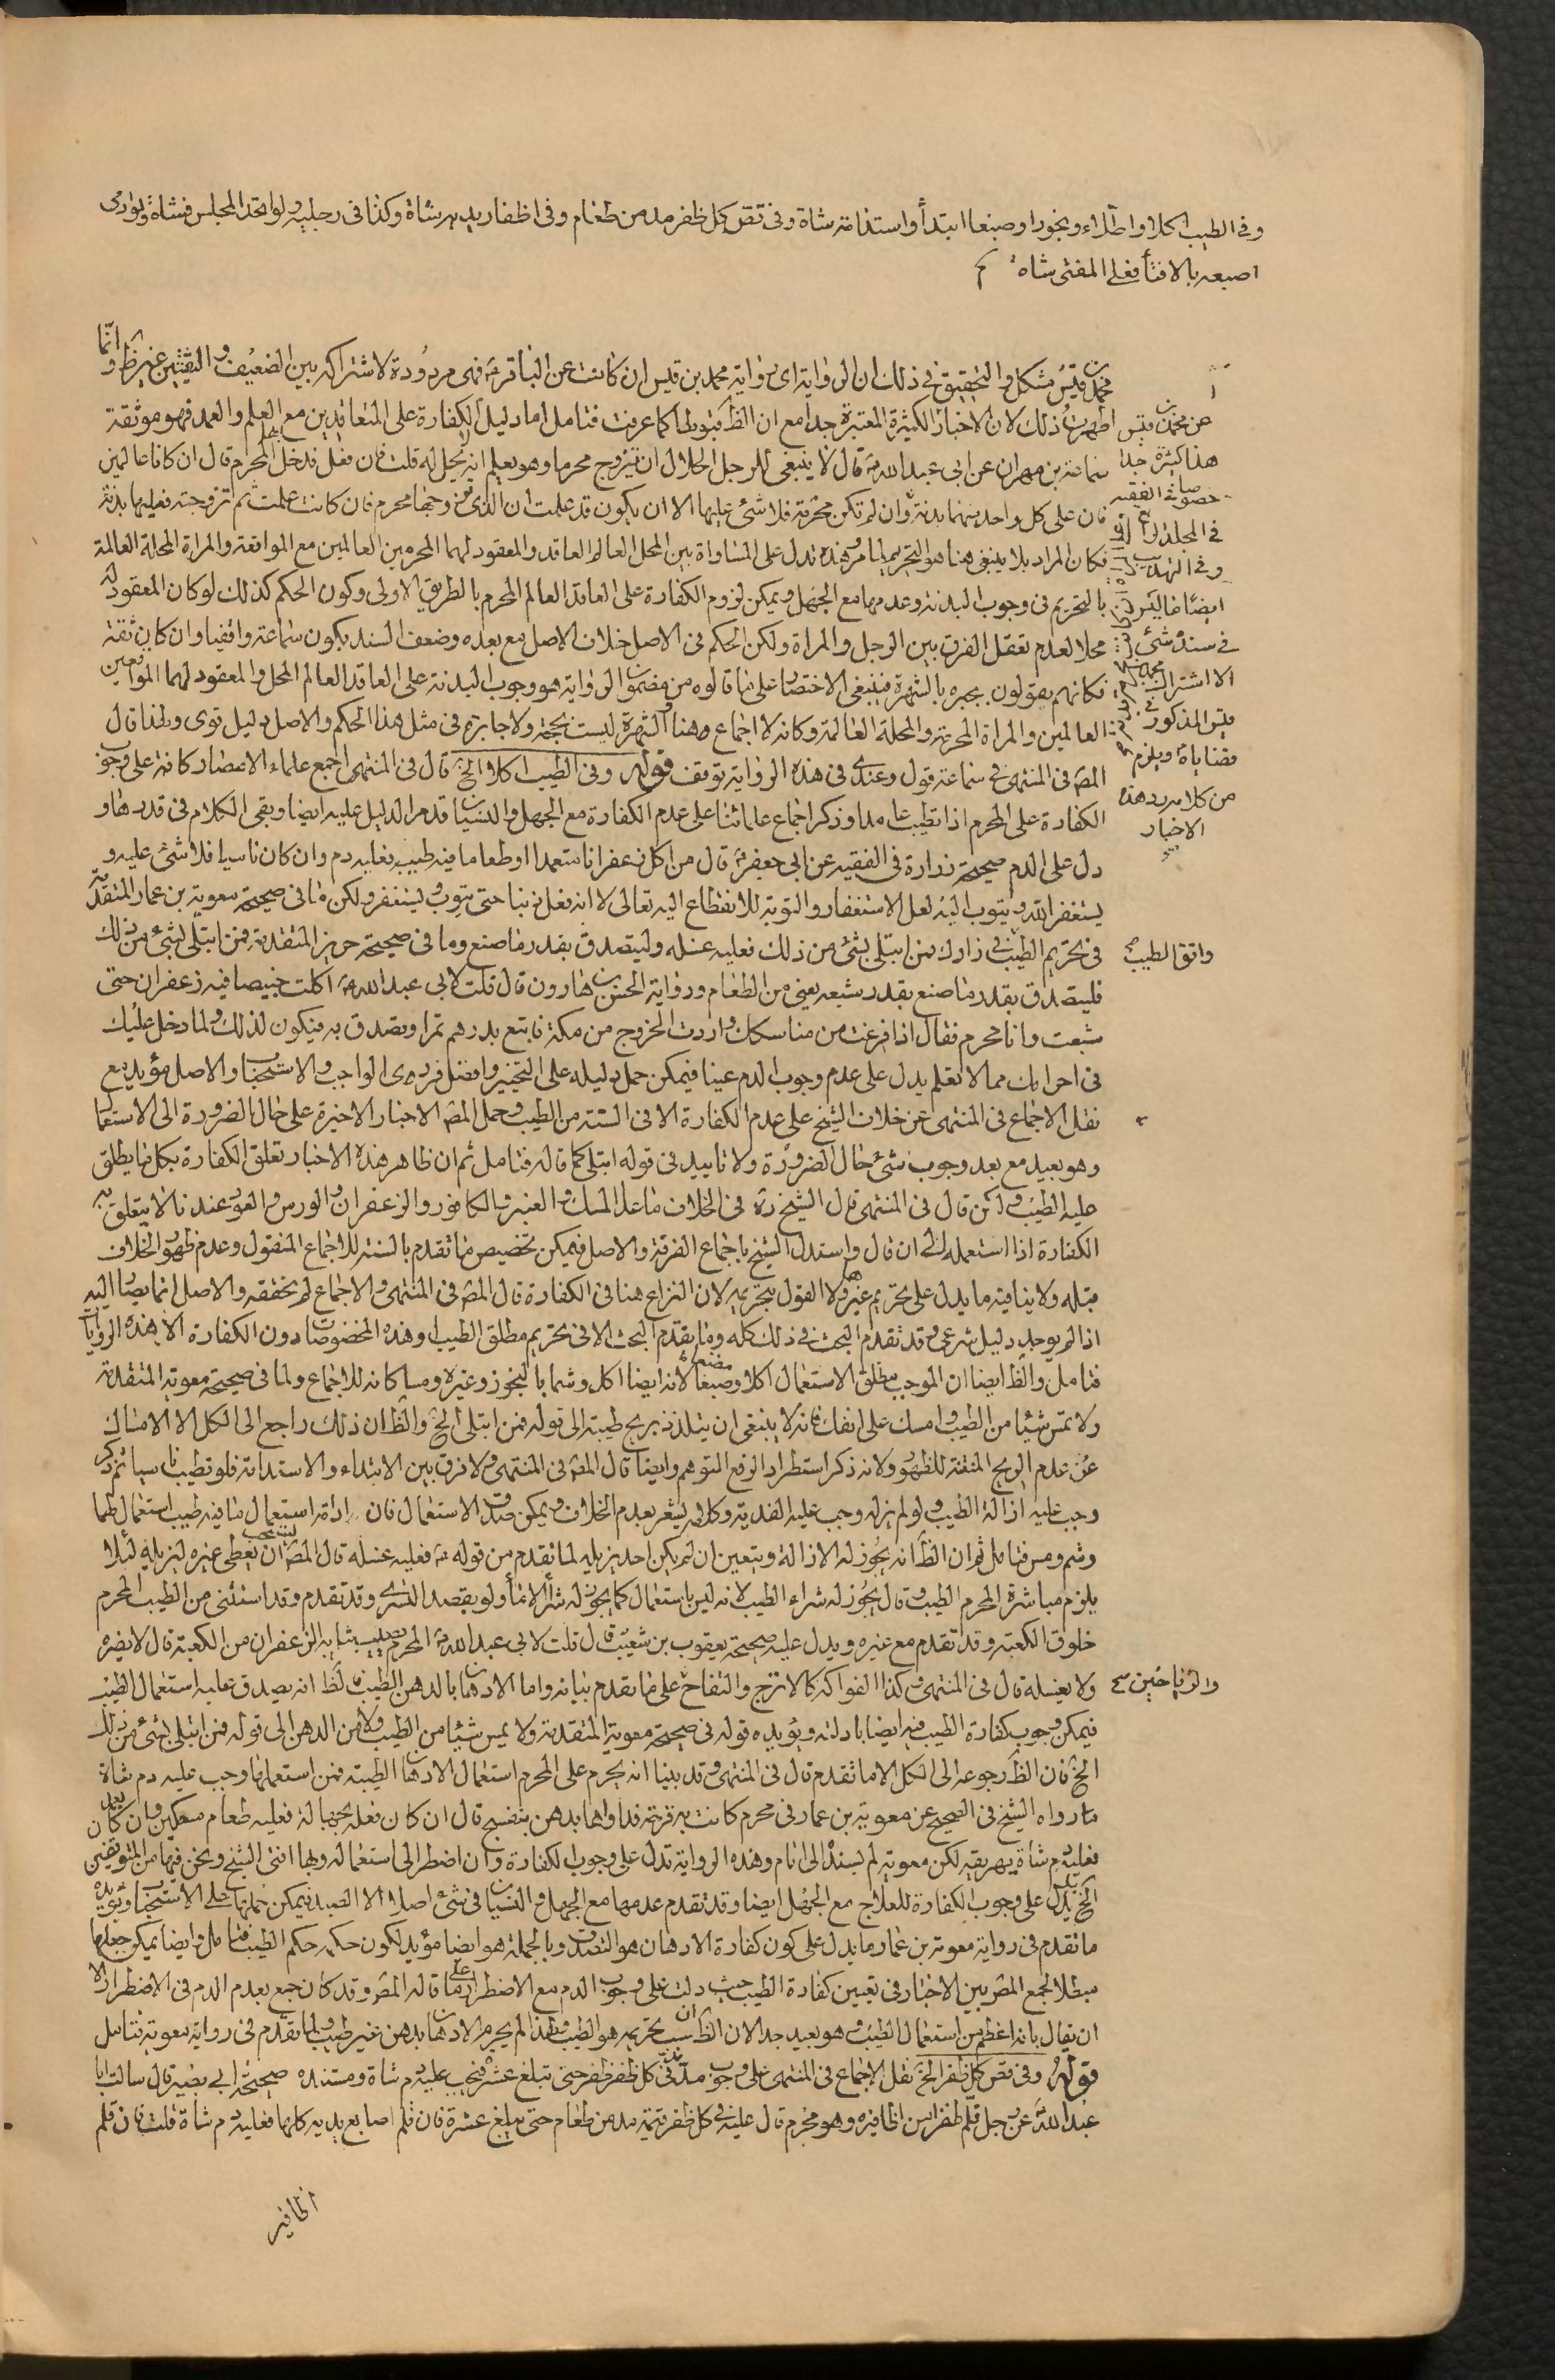 وفي الطيب اكلا واطلاء وبخورا وصبغا ابتدأ واستدامة شاة وفي قص كل ظفر مد من طعام وفي اظفار يديه شاة وكذا في رجليه ولو اتحد المجلس فشاة ولو ادمى
اصبعه بالافتاء فعلى المفتى شاة
محمد بن قيس مشكل والتحقيق في ذلك ان الرواية اى رواية محمد بن قيس ان كانت عن الباقر ع فهى مردودة لاشتراكه بين الضعيف والثقتين غيرظ وانما
اظهرت ذلك لان الاخبار الكثيرة المعتبرة جدا مع ان الظ قبولها كما عرفت فتامل اما دليل الكفارة على المتعاقدين مع العلم والعمد فهو موثقة
سماعة بن مهران عن ابى عبد الله ع قال لا ينبغى للرجل الحلال ان يتزوج محرما وهو يعلم انه لا يحل له قلت فان فعل فدخل بها المحرم قال ان كانا عالمين
فان على كل واحد منهما بدنة وان لم تكن محرمة فلا شئ عليها الا ان يكون قد علمت ان الذى تزوجها محرم فان كانت علمت ثم تزوجته فعليها بدنة
فكان المراد بلا ينبغى هنا هو التحريم لما مر وهذه تدل على المساواة بين المحل العالم العاقد والمعقود لهما المحرمين العالمين مع المواقعة والمراة المحلة العالمة
بالتحريم في وجوب البدنة وعدمها مع الجهل ويمكن لزوم الكفارة على العاقد العالم المحرم بالطريق الاولى وكون الحكم كذلك لو كان المعقود له
محلا لعدم تعقل الفرق بين الرجل والمراة ولكن الحكم في الاصل خلاف الاصل مع بعده وضعف السند بكون سماعة واقفيا وان كان ثقة
فكانهم يقولون بجبره بالشهرة فينبغى الاختصار على ما قالوه من مضمون الرواية هو وجوب البدنة على العاقد العالم المحل والمعقود لهما المواقعين
العالمين والمراة المحرمة والمحلة العالمة وكانه لا اجماع وهنا والشهرة ليست بحجة ولا جابرة في مثل هذا الحكم والاصل دليل قوى ولهذا قال
المص في المنتهى في سماعة قول وعندى في هذه الرواية توقف قوله وفي الطيب اكلا الخ قال في المنتهى اجمع علماء الامصار كافة على وجوب
الكفارة على المحرم اذا تطيب عامدا وذكر اجماع علمائنا على عدم الكفارة مع الجهل والنسيان قد مر الدليل عليه ايضا وبقى الكلام في قدرها و
دل على الدم صحيحة زرارة في الفقيه عن ابى جعفر ع قال من اكل زعفرانا متعمدا او طعاما فيه طيب فعليه دم وان كان ناسيا فلا شئ عليه و
يستغفر الله ويتوب اليه لعل الاستغفار والتوبة للانقطاع اليه تعالى لا انه فعل ذنبا حتى يتوب ويستغفر ولكن ما في صحيحة معوية بن عمار المتقدمة
في تحريم الطيب في زادك فمن ابتلى بشئ من ذلك فعليه غسله وليتصدق بقدر ما صنع وما في صحيحة حريز المتقدمة فمن ابتلى بشئ من ذلك
فليتصدق بقدر ما صنع بقدر شبعه يعنى من الطعام ورواية الحسن بن هارون قال قلت لابى عبد الله ع اكلت خبيصا فيه زعفران حتى
شبعت وانا محرم فقال اذا فرغت من مناسكك واردت الخروج من مكة فابتع بدرهم تمرا وتصدق به فيكون لذلك ولما دخل عليك
في احرامك مما لا تعلم يدل على عدم وجوب الدم عينا فيمكن حمل دليله على التخيير وافضل فردى الواجب والاستحباب والاصل مؤيد مع
نقل الاجماع في المنتهى عن خلاف الشيخ على عدم الكفارة الا في الستة من الطيب وحمل المص الاخبار الاخيرة على حال الضرورة الى الاستعمال
وهو بعيد مع بعد وجوب شئ حال الضرورة ولا تاييد في قوله ابتلى كما قاله فتامل ثم ان ظاهر هذه الاخبار تعلق الكفارة بكل ما يطلق
عليه الطيب ولكن قال في المنتهى قال الشيخ ره في الخلاف ما عدا المسك والعنبر والكافور والزعفران والورس والعود عندنا لا يتعلق به
الكفارة اذا استعمله الى ان قال واستدل الشيخ باجماع الفرقة والاصل فيمكن تخصيص ما تقدم بالستة للاجماع المنقول وعدم ظهور الخلاف
قبله ولا ينافيه ما يدل على تحريم غيرها ولا القول بتحريمه لان النزاع هنا في الكفارة قال المص في المنتهى والاجماع لم نحققه والاصل انما يصار اليه
اذا لم يوجد دليل شرعى وقد تقدم البحث في ذلك كله وما تقدم البحث الا في تحريم مطلق الطيب وهذه المخصوصات دون الكفارة الا بهذه الروايات
فتامل والظ ايضا ان الموجب مطلق الاستعمال اكلا وصبغا لانه ايضا اكل وشما بالبخور وغيره ومسا كانه للاجماع ولما في صحيحة معوية المتقدمة
ولا تمس شيئا من الطيب وامسك على انفك فانه لا ينبغى ان يتلذذ بريح طيبة الى قوله فمن ابتلى الخ والظ ان ذلك راجع الى الكل الا الامساك
عن عدم الريح المنتنة للظهور ولانه ذكر استطرادا لرفع التوهم وايضا قال المص في المنتهى ولا فرق بين الابتداء والاستدامة فلو تطيب ناسيا ثم ذكر
وجب عليه ازالة الطيب ولو لم يزله وجب عليه الفدية وكلامه يشعر بعدم الخلاف ويمكن صدق الاستعمال فان ادامة استعمال ما فيه طيب استعمال طما
وشم ومس فتامل ثم ان الظ انه يجوز له الازالة ويتعين ان لم يكن احد يزيله لما تقدم من قوله ع فعليه غسله قال المص يستحب ان يعطى غيره ليزيله لئلا
يلزم مباشرة المحرم الطيب وقال يجوز له شراء الطيب لانه ليس باستعمال كما يجوز له شراء الاماء ولو بقصد التسرى وقد تقدم وقد استثنى من الطيب المحرم
خلوق الكعبة وقد تقدم مع غيره ويدل عليه صحيحة يعقوب بن شعيب قال قلت لابى عبد الله ع المحرم يصيب ثيابه الزعفران من الكعبة قال لا يضره
ولا يغسله قال في المنتهى وكذا الفواكه كالاترج والتفاح على ما تقدم بيانه واما الادهان بالدهن الطيب فالظ انه يصدق عليه استعمال الطيب
فيمكن وجوب كفارة الطيب فيه ايضا بادلته ويؤيده قوله في صحيحة معوية المتقدمة ولا يمس شيئا من الطيب ولا من الدهن الى قوله فمن ابتلى بشئ من ذلك
الخ فان الظ رجوعه الى الكل الا ما تقدم قال في المنتهى وقد بينا انه يحرم على المحرم استعمال الادهان الطيبة فمن استعملها وجب عليه دم شاة
ما رواه الشيخ في الصحيح عن معوية بن عمار في محرم كانت به قرحة فداواها بدهن بنفسج قال ان كان فعله بجهالة فعليه طعام مسكين وان كان بعمد
فعليه دم شاة يهريقه لكن معوية لم يسنده الى امام وهذه الرواية تدل على وجوب الكفارة وان اضطر الى استعماله وبها افتى الشيخ ونحن فيها من المتوقفين
الخ يدل على وجوب الكفارة للعلاج مع الجهل ايضا وقد تقدم عدمها مع الجهل والنسيان في شئ اصلا الا الصيد فيمكن حملها على الاستحباب ويؤيده
ما تقدم في رواية معوية بن عمار ما يدل على كون كفارة الادهان هو التصدق وبالجملة هو ايضا مؤيد لكون حكمه حكم الطيب فتامل وايضا يمكن جعلها
مبطلا لجمع المص بين الاخبار في تعيين كفارة الطيب حيث دلت على وجوب الدم مع الاضطرار على ما قاله المص وقد كان جمع بعدم الدم في الاضطرار الا
ان يقال بانه اعظم من استعمال الطيب وهو بعيد جدا لان الظ ان سبب تحريمه هو الطيب ولهذا لم يحرم الادهان بدهن غير طيب ولما تقدم في رواية معوية فتامل
قوله وفي قص كل ظفر الخ نقل الاجماع في المنتهى على وجوب مد في كل ظفر ظفر حتى تبلغ عشرة فيجب عليه دم شاة ومستنده صحيحة ابى بصير قال سالت ابا
عبد الله ع عن رجل قلم ظفرا من اظافيره وهو محرم قال عليه في كل ظفر قيمة مد من طعام حتى يبلغ عشرة فان قلم اصابع يديه كلها فعليه دم شاة قلت فان قلم
اظافير
عن محمد بن قيس
هذا كثيرة جدا
خصوصا في الفقيه
في المجلد
وفي التهذيب
ايضا فاليس
في سنده شئ
الا اشتراك محمد بن
قيس المذكور في
قضاياه ويلزم
من كلامه رد هذه
الاخبار
واتق الطيب
والرياحين